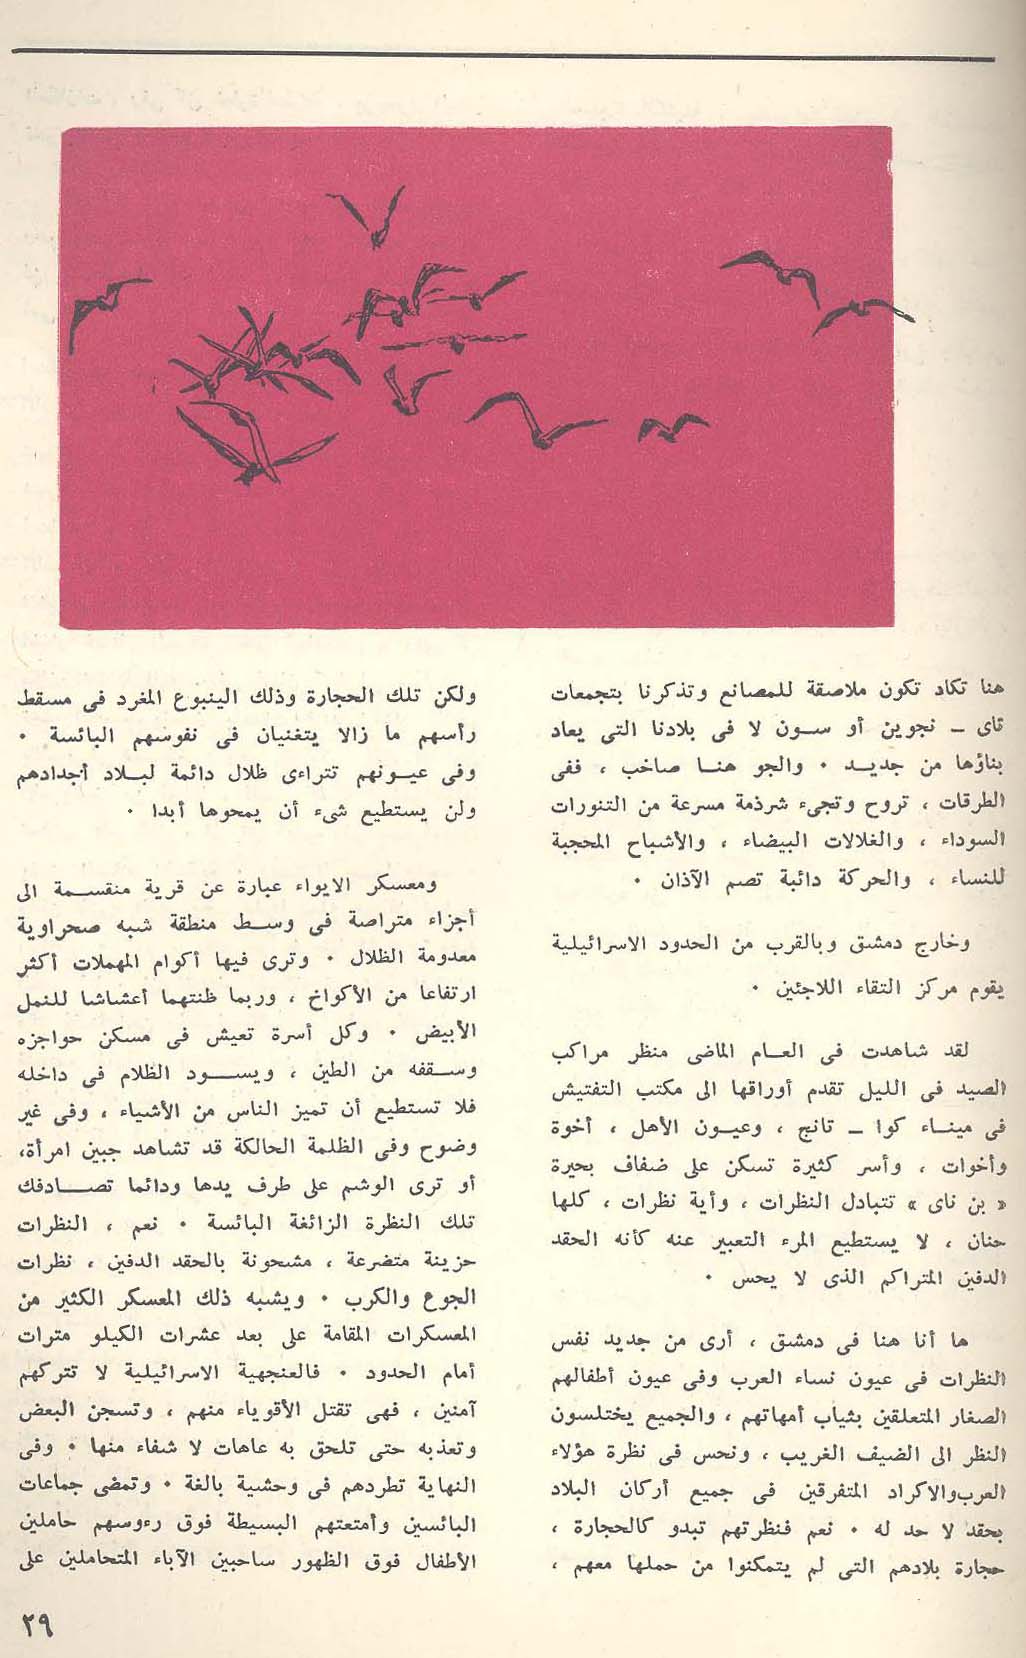 هنا تكاد تكون ملاصقة للمصانع وتذكرنا بتجمعات
تاى - نجوين أو سون لا فى بلادنا التى يعاد
بناؤها من جديد . والجو هنا صاخب ، ففى
الطرقات ، تروح وتجىء شرذمة مسرعة من التنورات
السوداء ، والغلالات البيضاء ، والأشباح المحجبة
للنساء ، والحركة دائبة تصم الآذان .
وخارج دمشق وبالقرب من الحدود الاسرائيلية
يقوم مركز التقاء اللاجئين .
لقد شاهدت فى العام الماضى منظر مراكب
الصيد فى الليل تقدم أوراقها الى مكتب التفتيش
فى ميناء كوا - تانج ، وعيون الأهل ، أخوة
وأخوات ، وأسر كثيرة تسكن على ضفاف بحيرة
« بن ناى » تتبادل النظرات ، وأية نظرات ، كلها
حنان ، لا يستطيع المرء التعبير عنه كأنه الحقد
الدفين المتراكم الذى لا يحس .
ها أنا هنا فى دمشق ، أرى من جديد نفس
النظرات فى عيون نساء العرب وفى عيون أطفالهم
الصغار المتعلقين بثياب أمهاتهم ، والجميع يختلسون
النظر الى الضيف الغريب ، ونحس فى نظرة هؤلاء
العرب والاكراد المتفرقين فى جميع أركان البلاد
بحقد لا حد له . نعم فنظرتهم تبدو كالحجارة ،
حجارة بلادهم التى لم يتمكنوا من حملها معهم ،
ولكن تلك الحجارة وذلك الينبوع المغرد فى مسقط
رأسهم ما زالا يتغنيان فى نفوسهم البائسة .
وفى عيونهم تتراءى ظلال دائمة لبلاد أجدادهم
ولن يستطيع شىء أن يمحوها أبدا .
ومعسكر الايواء عبارة عن قرية منقسمة الى
أجزاء متراصة فى وسط منطقة شبه صحراوية
معدومة الظلال . وترى فيها أكوام المهملات أكثر
ارتفاعا من الأكواخ ، وربما ظننتها أعشاشا للنمل
الأبيض . وكل أسرة تعيش فى مسكن حواجزه
وسقفه من الطين ، ويسود الظلام فى داخله
فلا تستطيع أن تميز الناس من الأشياء ، وفى غير
وضوح وفى الظلمة الحالكة قد تشاهد جبين امرأة،
أو ترى الوشم على طرف يدها ودائما تصادفك
تلك النظرة الزائغة البائسة . نعم ، النظرات
حزينة متضرعة ، مشحونة بالحقد الدفين ، نظرات
الجوع والكرب . ويشبه ذلك المعسكر الكثير من
المعسكرات المقامة على بعد عشرات الكيلو مترات
أمام الحدود . فالعنجهية الاسرائيلية لا تتركهم
آمنين ، فهى تقتل الأقوياء منهم ، وتسجن البعض
وتعذبه حتى تلحق به عاهات لا شفاء منها . وفى
النهاية تطردهم فى وحشية بالغة . وتمضى جماعات
البائسين وأمتعتهم البسيطة فوق رءوسهم حاملين
الأطفال فوق الظهور ساحبين الآباء المتحاملين على
٢٩